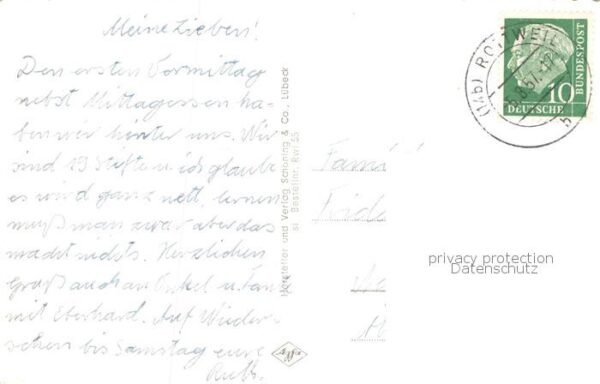 Meine Lieben!
Den ersten Vormittag
nebst Mittagessen ha-
ben wir hinter uns. Wir
sind 19 Stifte u. ich glaube
es wird ganz nett, lernen
muß man zwar aber das
macht nichts. Herzlichen
Gruß auch an Onkel u. Tan
mit Eberhard. Auf Wieder-
sehen bis Samstag eure
Ruth.
Hersteller und Verlag Schöning & Co., Lübeck
Bestellnr. Rwl 55
Fami
Frida
(14b) ROTTWEIL
8.57.-12
b
10
DEUTSCHE
BUNDESPOST
privacy protection
Datenschutz